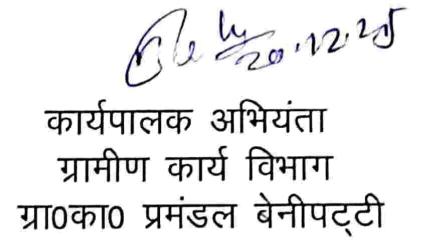 20.12.25
कार्यपालक अभियंता
ग्रामीण कार्य विभाग
ग्रा0का0 प्रमंडल बेनीपट्टी